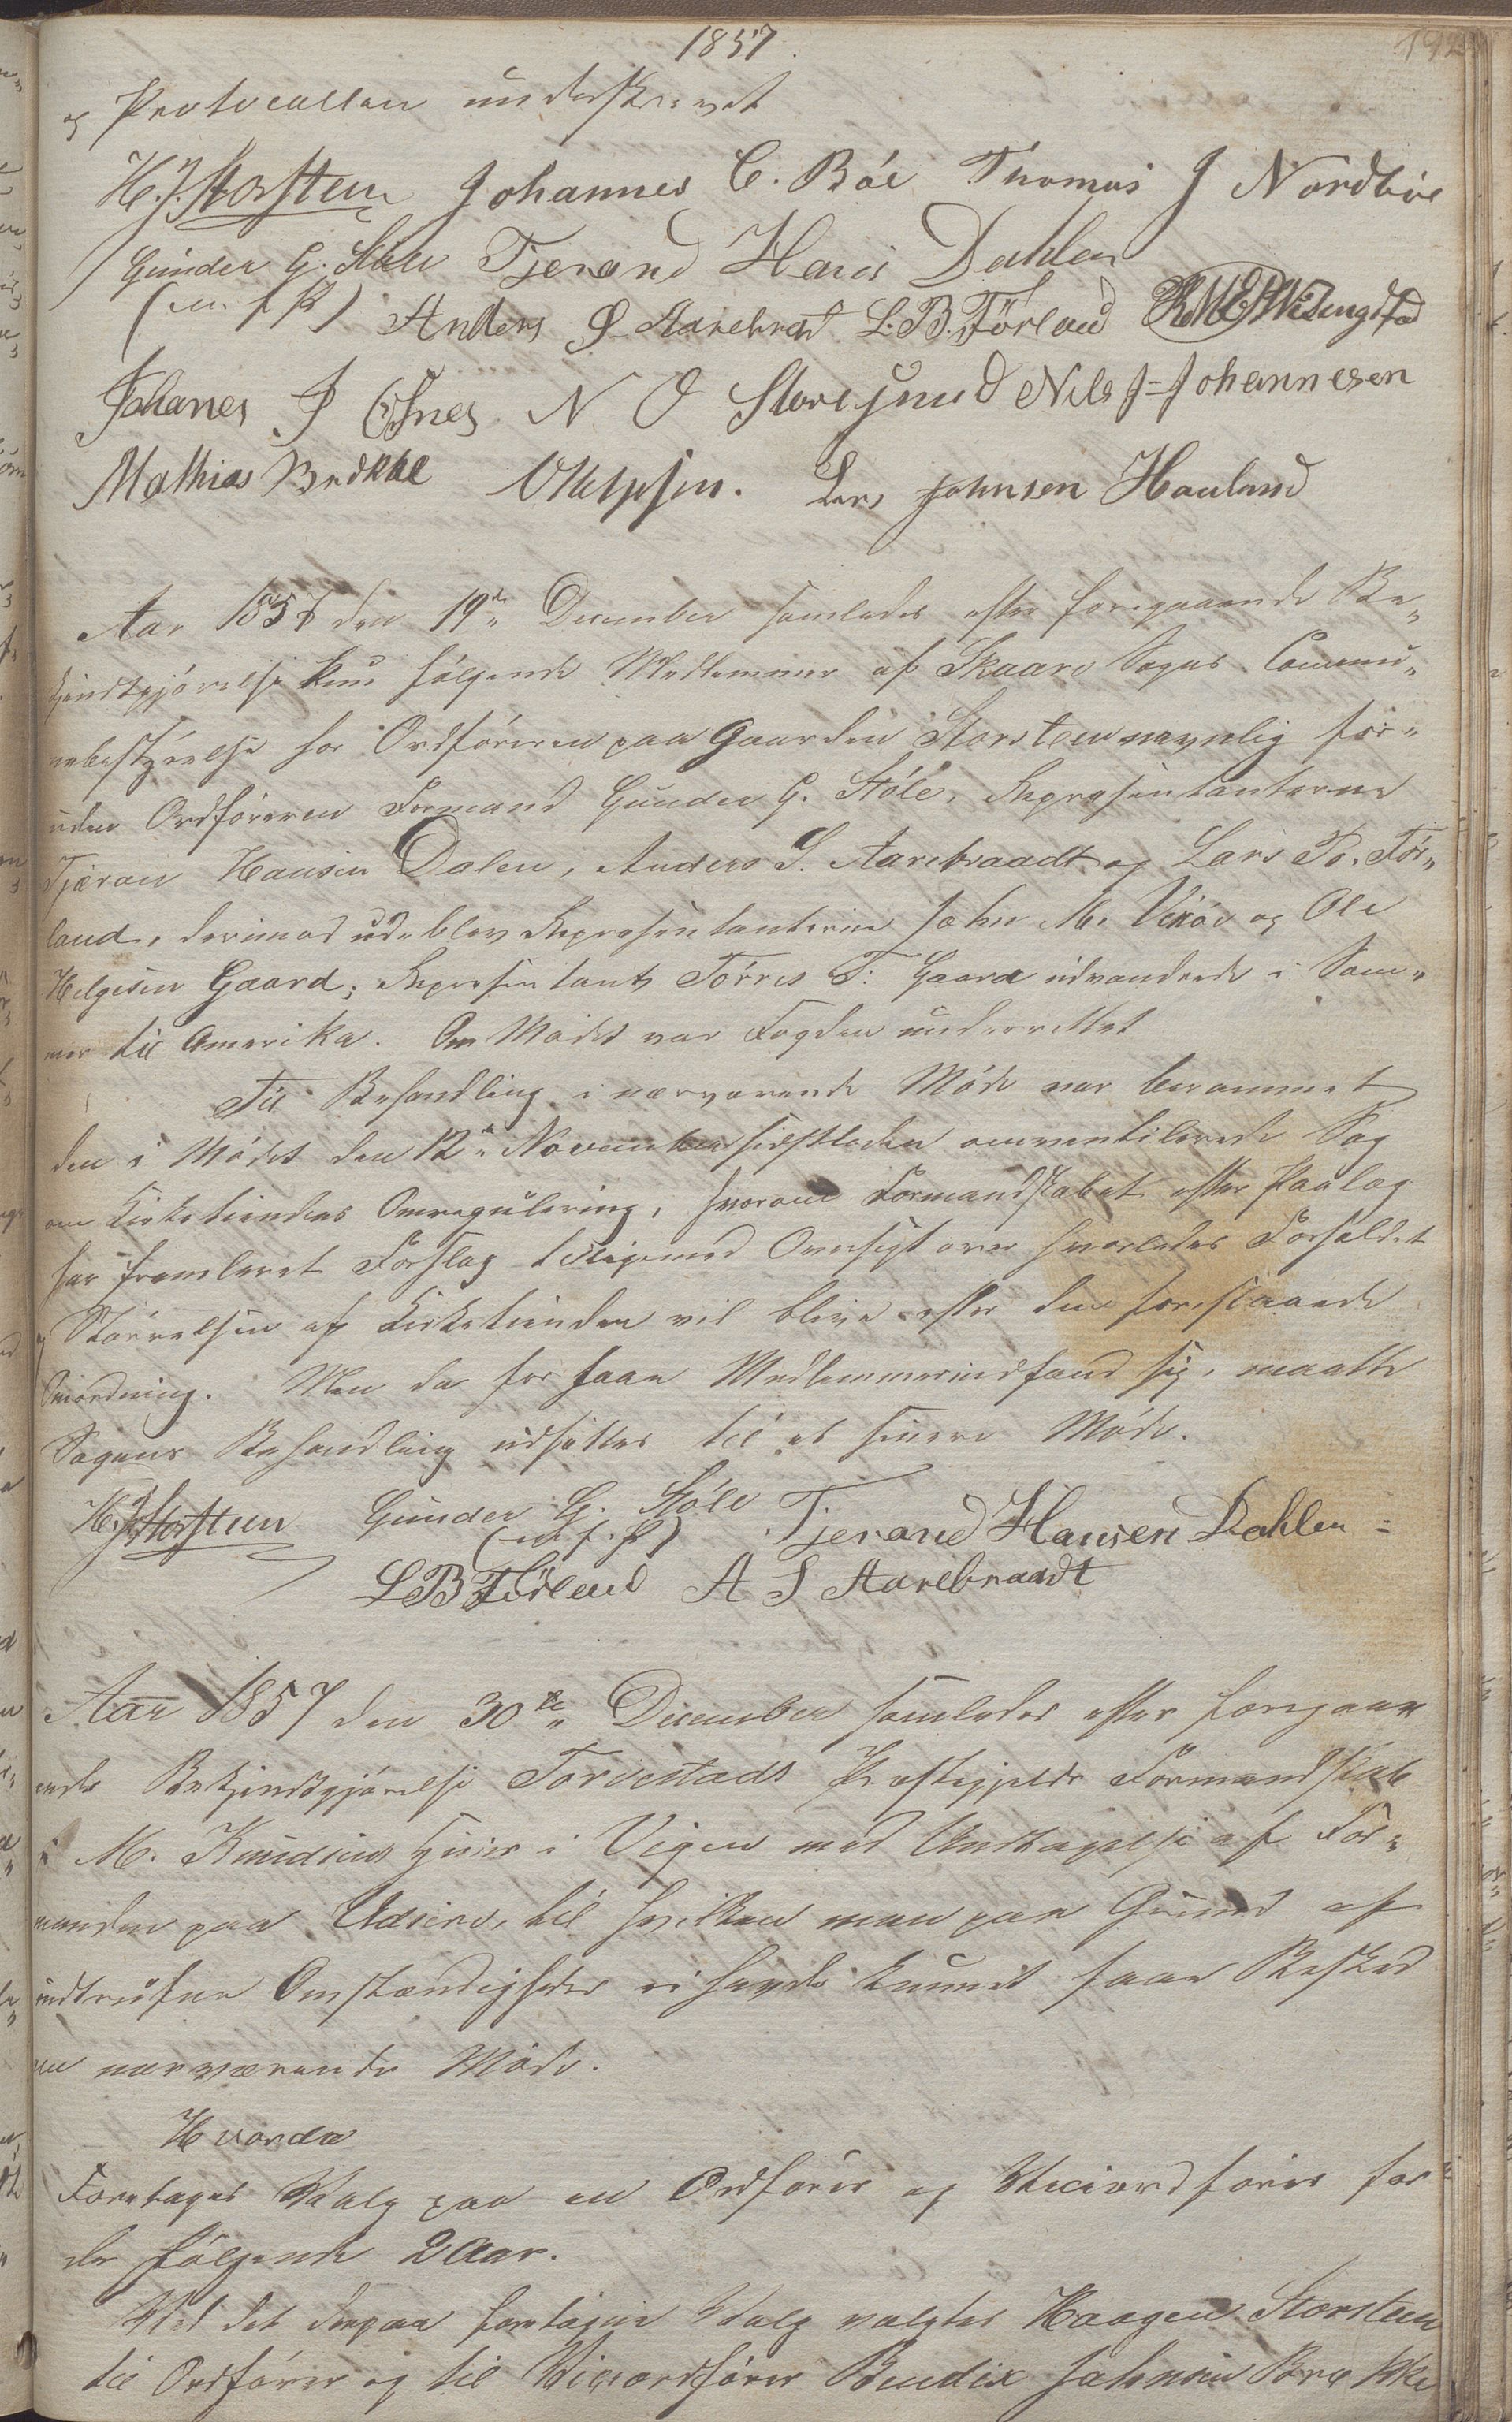 1857.
192
og Protocollen underskrevet
H. J. Storsteen Johannes C. Böe Thomas J Nordböe
Gunder G. Stöle Tjerand Hans Dahlen
(m. f. P.) Anders S Aarebrod L. B. Förland
Johanes J Nes N O Storesund Nils J=Johannesen
Mathias Lars Johnsen Hauland
Aar 1857 den 19de December samledes efter foregaaende Be„
kjendtgjörelse kun fölgende Medlemmer af Skaare Sogns Commu„
nebestyrelse hos Ordföreren paa Gaarden Storsteen navnlig for„
uden Ordföreren Formand Gunder G. Stöle, Repræsentanterne
Tjæran Hansen Dalen, Anders S. Aarebraadt og Lars B. För„
land, derimod udeblev Repræsentanterne John M. Vixöe og Ole
Helgesen Gaard; Repræsentant Törres T. Gaard udvandrede i Som„
mer til Amerika. Om Mödet var Fogden underrettet
Til Behandling i nærværende Möde var berammet
den i Mödet den 12te November sidstleden omventilerede Sag
om Kirketiendens Omregulering, hvorom Formandskabet efter Paalæg
har fremlevet Forslag tilligemed Oversigt over hvorledes Forholdet
og Störrelsen af Kirketienden vil blive efter den forestaaende
Omordning. Men da for faae Medlemmer indfand sig, maatte
Sagens Behandling udsættes til et senere Möde.
H. J. Storsteen Gunder G. Stöle Tjerand Hansen Dahlen =
(m. f. P.)
L B Förland A S Aarebraadt
Aar 1857 den 30te December samledes efter foregaa„
ende Bekjendtgjörelse Torvestads Præstegjelds Formandskab
i M. Knudsens Huus i Vigen med Undtagelse af For„
manden paa Udsire, til hvilken man paa Grund af
indtrufne Omstændigheder ei havde kunnet faae Besked
om nærværende Möde.
Hvorda
Foretoges Valg paa en Ordförer og Viceordförer for
de fölgende 2 Aar.
Ved det derpaa foretagne Valg valgtes Haagen Storsteen
til Ordförer og til Viceordförer Bendix Johnsen Brække